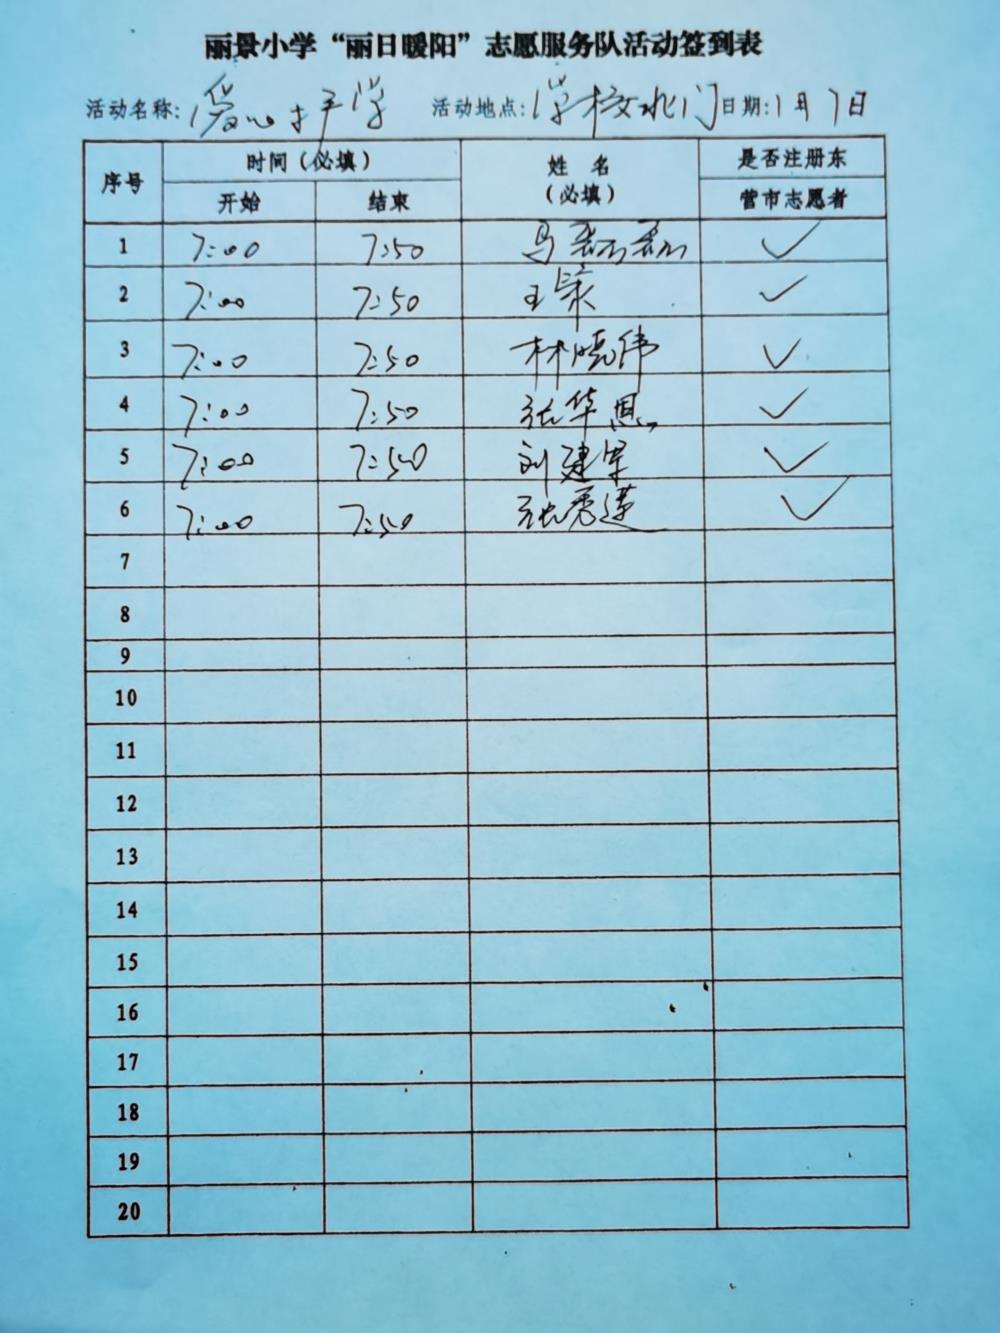 丽景小学“丽日暖阳”志愿服务队活动签到表
活动名称:爱心护学 活动地点:学校北门 日期:1月7日
序号 时间(必填) 姓名(必填) 是否注册东营市志愿者
开始 结束
1 7:00 7:50 马磊磊 ✓
2 7:00 7:50 王 ✓
3 7:00 7:50 林晓伟 ✓
4 7:00 7:50 张华恩 ✓
5 7:00 7:50 刘建军 ✓
6 7:00 7:50 张秀莲 ✓
7
8
9
10
11
12
13
14
15
16
17
18
19
20